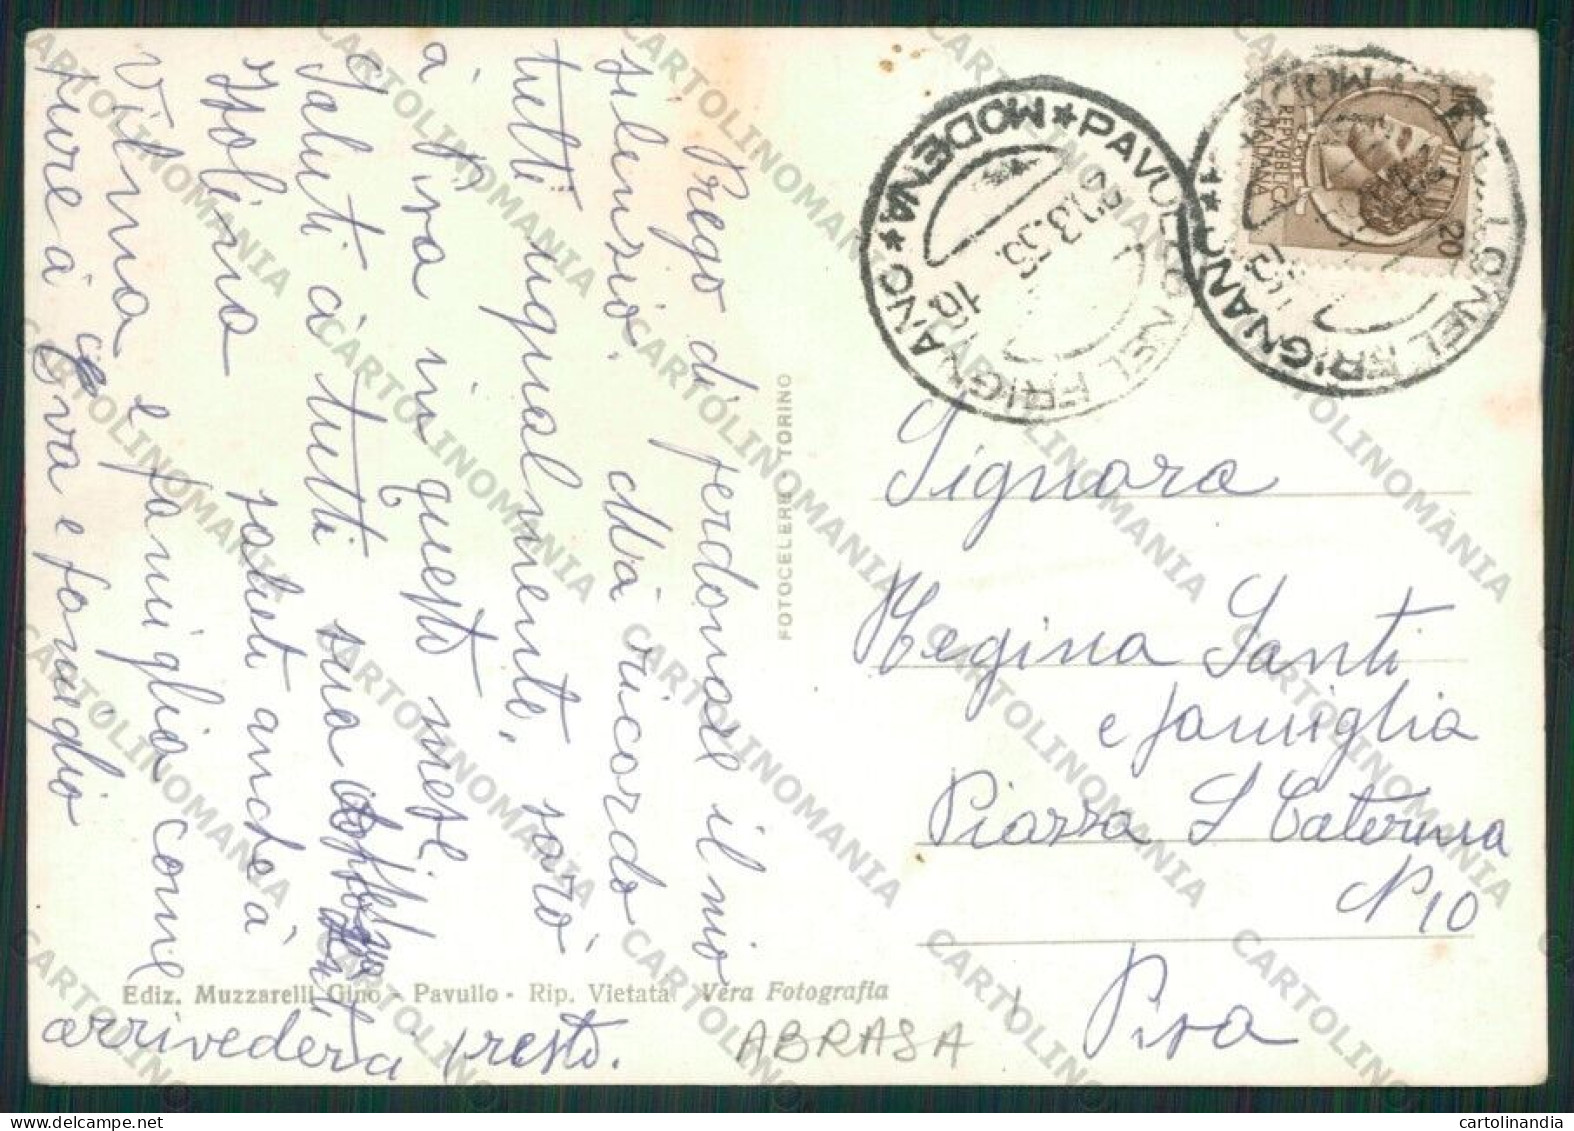 Prego di perdonare il mio
silenzio. Mà ricordo
tutti ugualmente, sarò
a Pisa in questo mese
Saluti a tutti sua
Isolina saluti anche à
Vilma e famiglia come
pure à Eva e famiglia
arrivederci presto.
PAVULLO NEL FRIGNANO
★ MODENA ★
.3.55.
16
PAVULLO NEL FRIGNANO
★ MODENA ★
REPVBBLICA
ITALIANA
POSTE
20
Signora
Regina Santi
e famiglia
Piazza S Caterina
N 10
Pisa
FOTOCELERE TORINO
Ediz. Muzzarelli Gino - Pavullo - Rip. Vietata Vera Fotografia
ABRASA
CARTOLINOMANIA
delcampe.net
cartolinandia